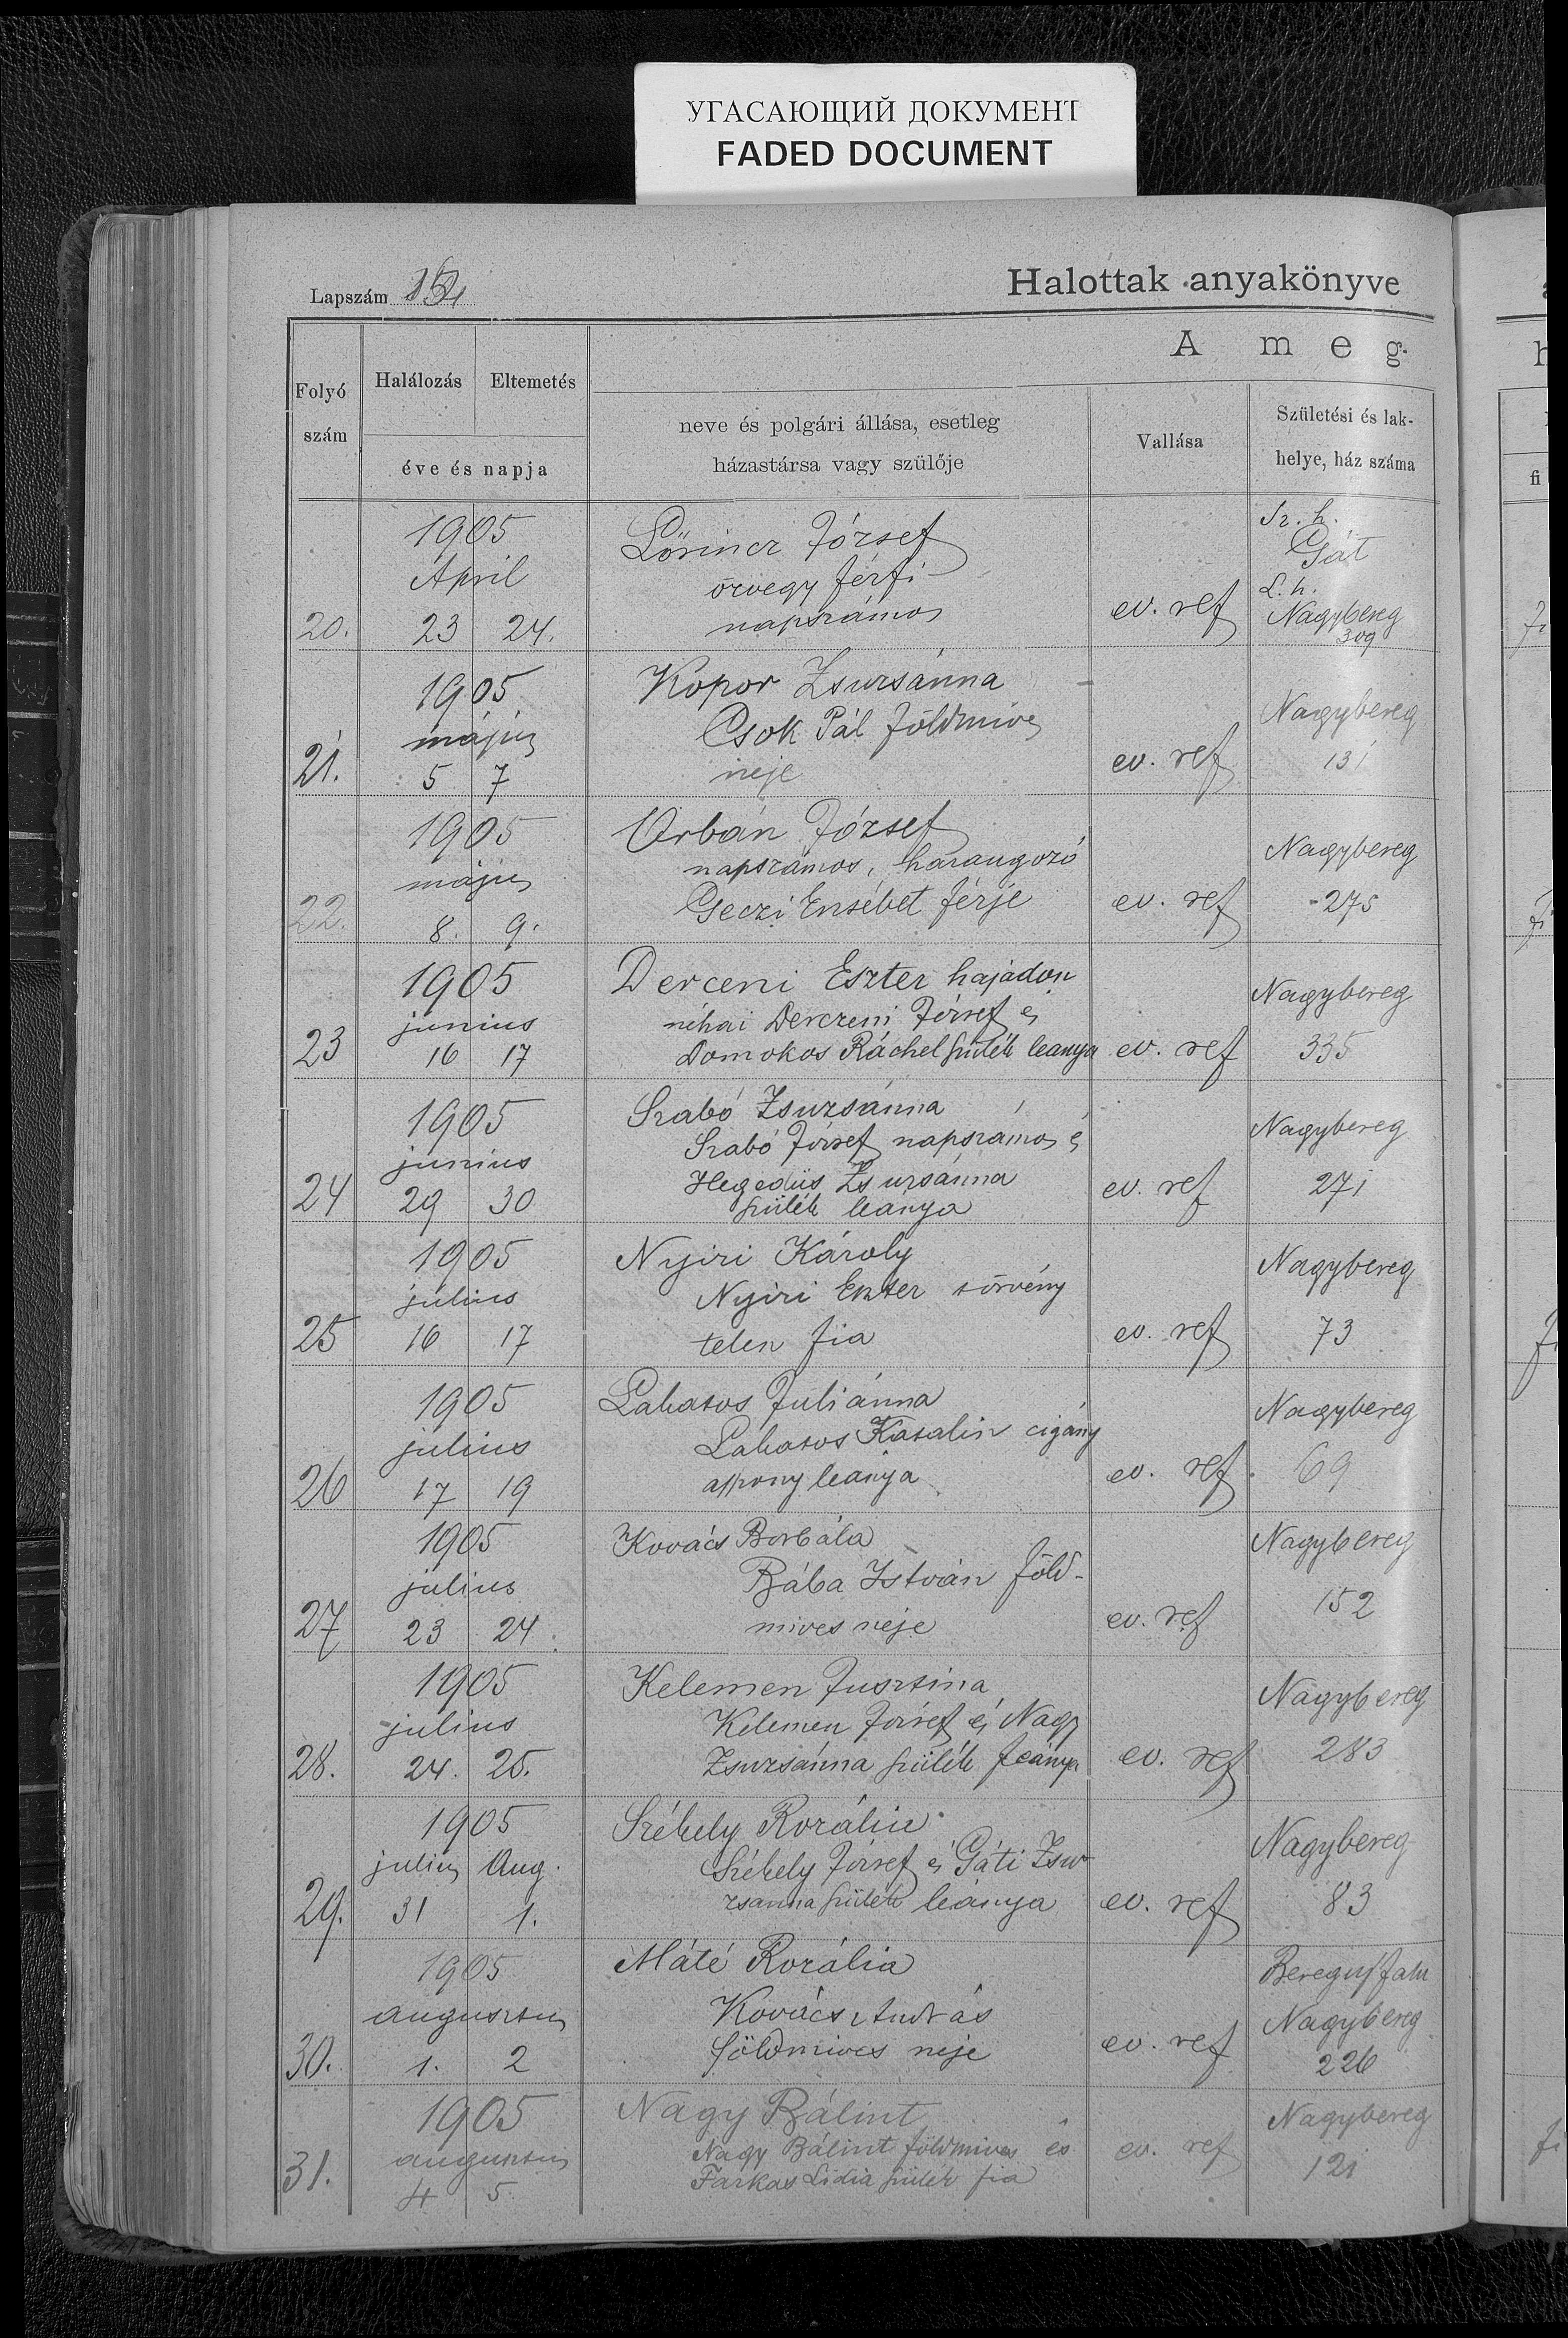 УГАСАЮЩИЙ ДОКУМЕНТ
FADED DOCUMENT
Lapszám
Halottak anyakönyve
A meg-
Folyó szám
Halálozás
Eltemetés
éve és napja
neve és polgári állása, esetleg
házastársa vagy szülője
Vallása
Születési és lak-
helye, ház száma
fi
1905
Lőrincz József
Sz. h.
Gát
April
özvegy férfi
L. h.
20. 23 24.
napszámos
ev. ref
Nagybereg
309
1905
Kopor Zsuzsánna
május
Csok Pál földmives
Nagybereg
21. 5 7
neje
ev. ref
131
1905
Orbán József
május
napszámos, harangozó
Nagybereg
22. 8. 9.
Geczi Ersébet férje
ev. ref
275
1905
Derceni Eszter hajadon
Nagybereg
junius
néhai Derczeni József és
23 16 17
Domokos Ráchel szülék leanya
ev. ref
335
1905
Szabó Zsuzsánna
Szabó József napszamos és
Nagybereg
junius
Hegedüs Zsuzsánna
24 29 30
szülék leánya
ev. ref
271
1905
Nyiri Károly
Nagybereg
július
Nyiri Eszter törvény
25 16 17
telen fia
ev. ref
73
1905
Lakatos Juliánna
Nagybereg
július
Lakatos Katalin cigány
26 17 19
asszony leánya
ev. ref
69
1905
Kovács Borbála
Nagybereg
július
Bába István föld-
27 23 24.
mives neje
ev. ref
152
1905
Kelemen Jusztina
Nagybereg
julius
Kelemen József és Nagy
28. 24. 25.
Zsuzsánna szülék leánya
ev. ref
283
1905
Székely Rozália
julius Aug.
Székely József és Gáti Zsu
Nagybereg
29. 31 1.
zsanna szülék leánya
ev. ref
83
1905
Máté Rozália
Beregujfalu
augusztus
Kovács András
Nagybereg
30. 1. 2
földmives neje
ev. ref
226
1905
Nagy Bálint
Nagybereg
augusztus
Nagy Bálint földmives és
31. 4 5.
Farkas Lidia szülék fia
ev. ref
121